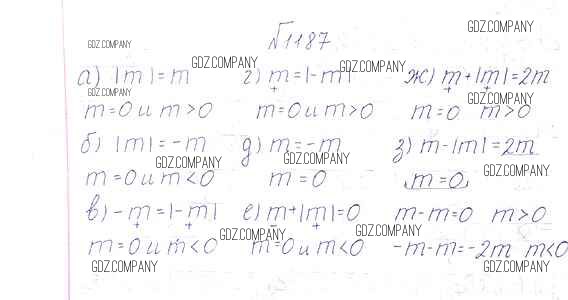 №1187
GDZ.COMPANY
GDZ.COMPANY
а) |m| = m
GDZ.COMPANY
г) m = |-m|
GDZ.COMPANY
ж) m + |m| = 2m
GDZ.COMPANY
GDZ.COMPANY
m = 0 и m > 0
m = 0 и m > 0
m = 0 m > 0
б) |m| = -m
д) m = -m
з) m - |m| = 2m
GDZ.COMPANY
GDZ.COMPANY
GDZ.COMPANY
m = 0 и m < 0
m = 0
m = 0
в) -m = |-m|
е) m + |m| = 0
m - m = 0 m > 0
GDZ.COMPANY
GDZ.COMPANY
m = 0 и m < 0
m = 0 и m < 0
-m - m = -2m m < 0
GDZ.COMPANY
GDZ.COMPANY